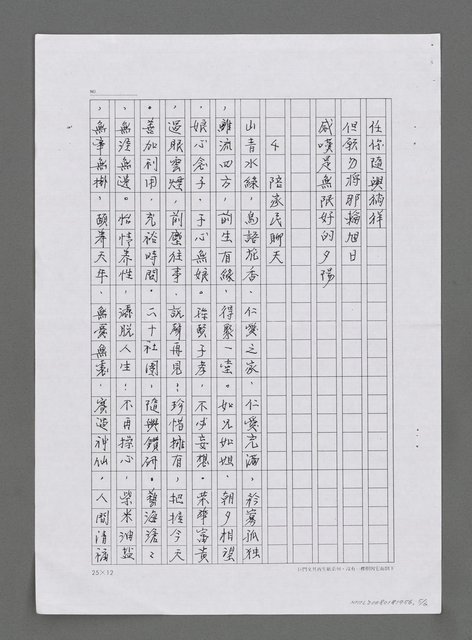 任你隨興徜徉
但願勿將那輪旭日
感嘆是無限好的夕陽
4 陪家民聊天
山青水綠，鳥語花香，仁愛之家，仁愛充滿，矜寡孤獨
，雖流四方，前生有緣，得聚一堂。如兄如姐，朝夕相望
，娘心念子，子心無娘。孫賢子孝，不必妄想。榮華富貴
，過眼雲煙，前塵往事，說聲再見！珍惜擁有，把握今天
。善加利用，充裕時間。二十社團，隨興鑽研。藝海滄滄
，無涯無邊。怡情養性，灑脫人生！不再操心，柴米油鹽
，無事無掛，頤養天年，無憂無慮，賽過神仙。人間清福
25×12
NO.